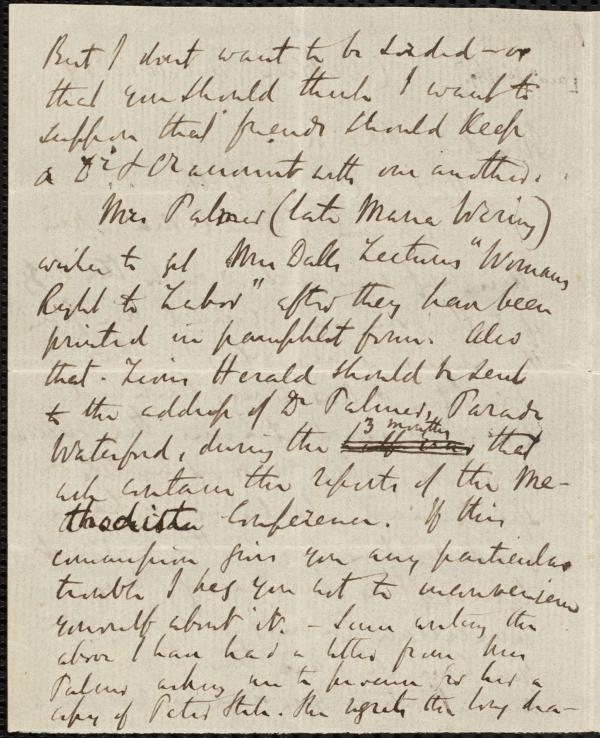 But I dont want to be sended - or
that you should think I want to
suppose that friends should keep
a Dr & Cr account with one another.
Mrs Palmer (late Maria Waring)
wishes to get Mrs Dalls Lectures "Womans
Right to Labor" after they have been
printed in pamphlet form. Also
that Zions Herald should be sent
to the address of Dr Palmer, Parade
Waterford, during the 3 months that
wh contain the reports of the Me-
thodists Conference. If this
commission gives you any particular
trouble I beg you not to inconvenience
yourself about it. - Since writing the
above I have had a letter from Mrs
Palmer asking me to procure for her a
copy of Peter Still. She regrets the long